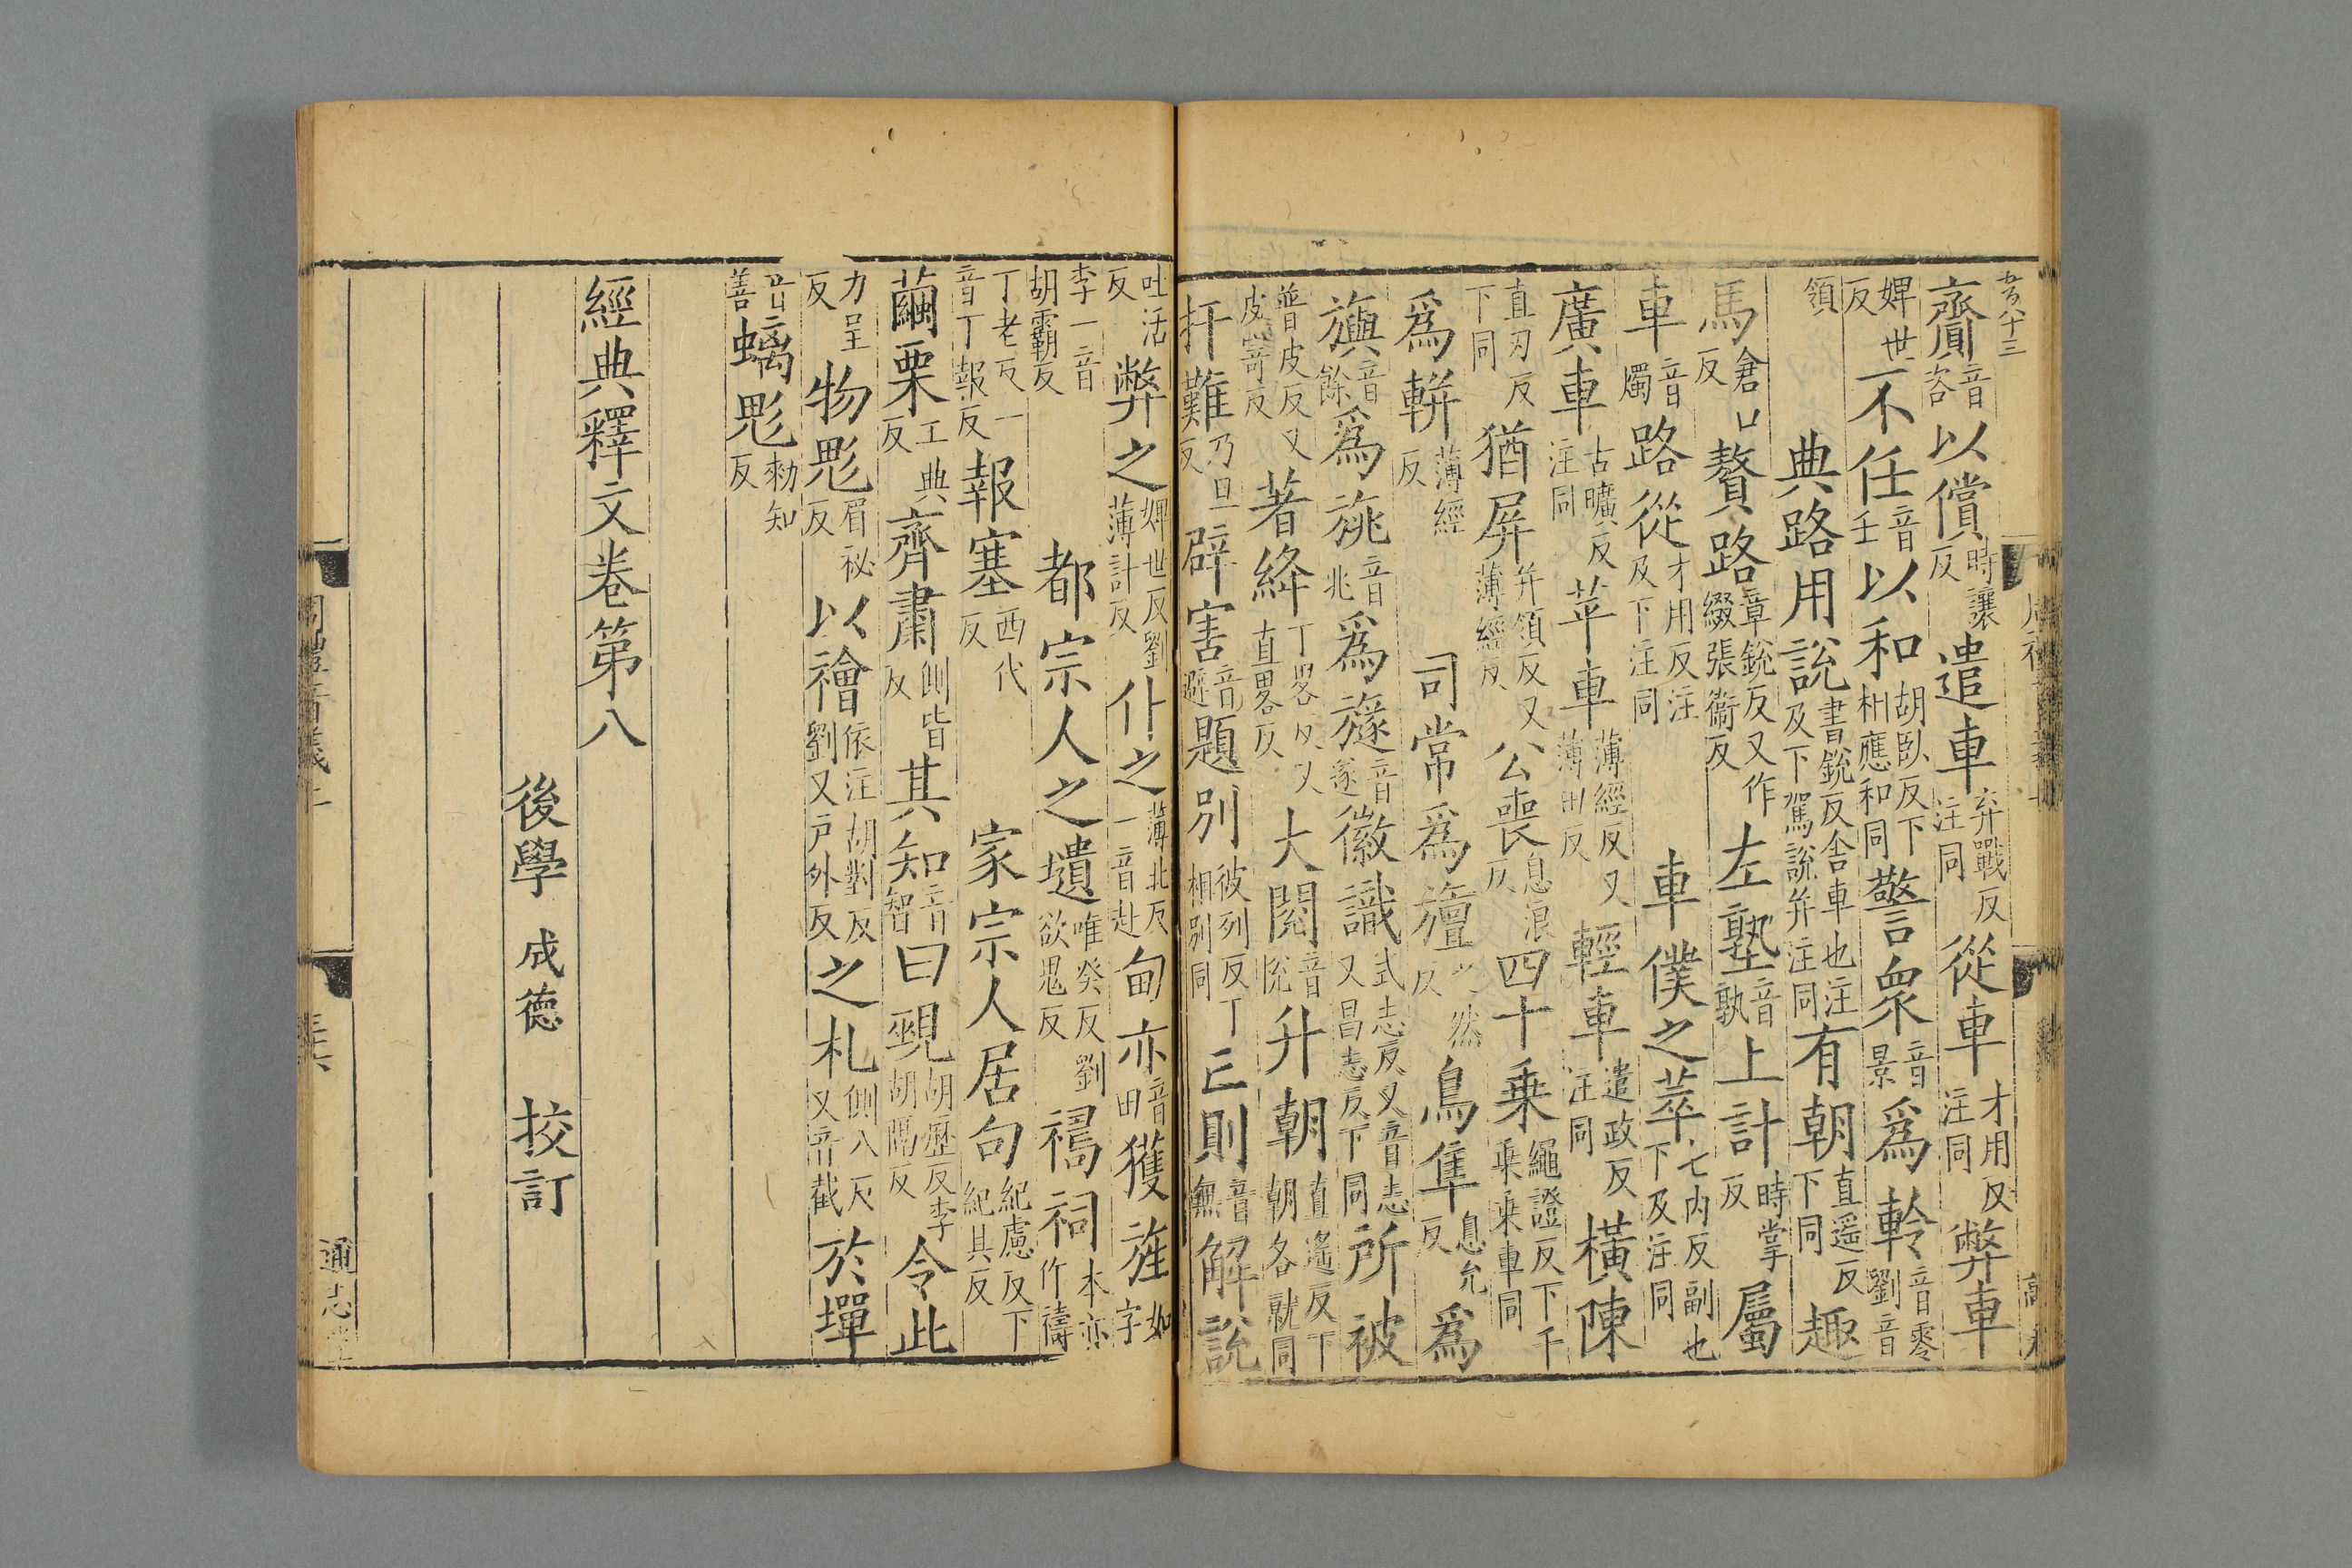 齎音咨以償時讓反遣車弃戰反注同從車才用反注同弊車
婢世反不任音壬以和胡臥反下相應和同警衆音景爲軨音零劉音
領
典路用說書銳反舍車也注及下駕說并注同有朝直遥反下同趣
馬倉口反贅路章銳反又作綴張衞反左塾音孰上計時掌反屬
車音燭路從才用反注及下注同
車僕之萃七内反副也下及注同
廣車古曠反注同苹車薄經反又薄田反輕車遣政反注同橫陳
直刃反下同猶屏并領反又薄經反公喪息浪反四十乗繩證反下千乗乗車同
爲輧薄經反
司常爲旜之然反鳥隼息允反爲
旟音餘爲旐音兆爲旞音遂徽識式志反又音志又昌志反下同所被
普皮反又皮寄反著絳丁畧反又直畧反大閱音悦升朝直遥反下朝各就同
扞難乃旦反辟害音避題別彼列反丁相別同亡則音無解說
吐活反弊之婢世反劉薄計反仆之薄北反一音赴甸亦音田獲旌如字
李一音胡霸反
都宗人之壝唯癸反劉欲鬼反禂祠本亦作禱
丁老反一音丁報反報塞西代反
家宗人居句紀慮反下紀具反
繭栗工典反齊肅側皆反其知音智曰覡胡歷反李胡隔反令此
力呈反物鬽眉祕反以禬依注胡對反劉又戸外反之札側八反又音截於墠
音善螭鬽勑知反
經典釋文卷第八
後學 成德 挍訂
通志堂